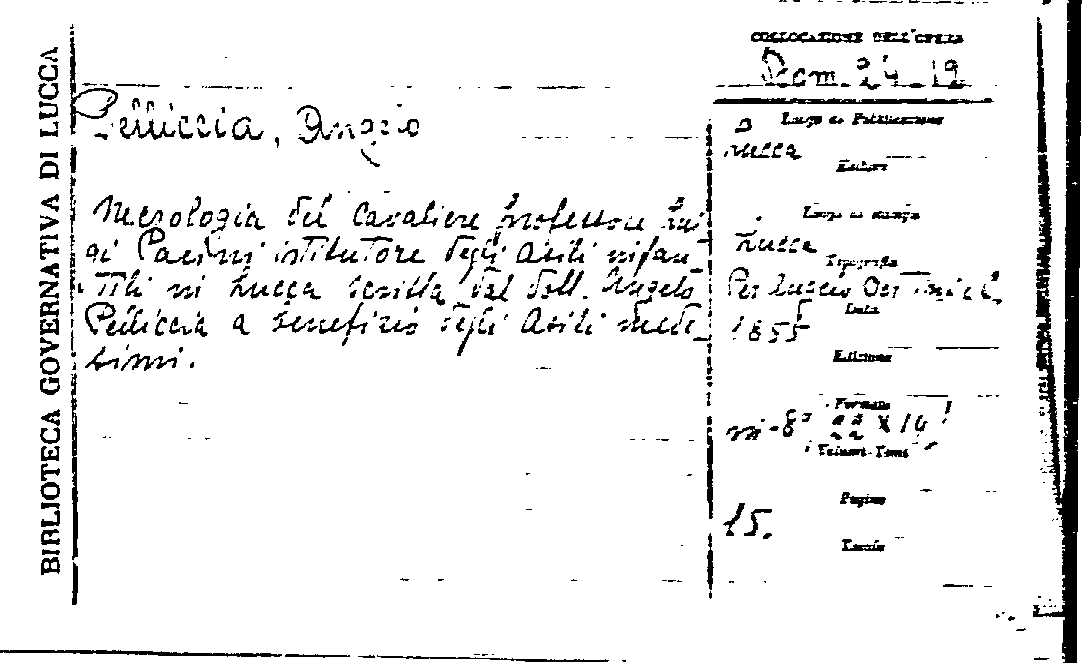 BIBLIOTECA GOVERNATIVA DI LUCCA
COLLOCAZIONE DELL'OPERA
24-12
Pelliccia, Angelo
Necrologia del cavaliere professore Lui-
gi Pacini istitutore degli Asili infan-
tili in Lucca scritta dal dott. Angelo
Pelliccia a benefizio degli Asili mede-
simi.
Luogo di Pubblicazione
Lucca
Editore
Luogo di stampa
Lucca
Tipografia
Per Luccio
Data
1855
Edizione
Formato
in-8° 22 X 14
Volumi-Tomi
Pagine
15.
Tavole